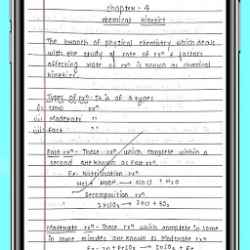 Chapter - 4
chemical kinetics
The branch of physical chemistry which deals
with the study of rate of rxn & factors
affecting rate of rxn is known as chemical
kinetics.
Types of rxn :- It is of 3 types
(i) slow rxn
(ii) Moderate "
(iii) fast "
Fast rxn - Those rxn which complete within a
second are known as fast rxn.
Ex:- Neutralisation rxn
HCl + NaOH → NaCl + H2O
Decomposition rxn
Moderate rxn - Those rxn which complete in some
to more minutes are known as Moderate rxn